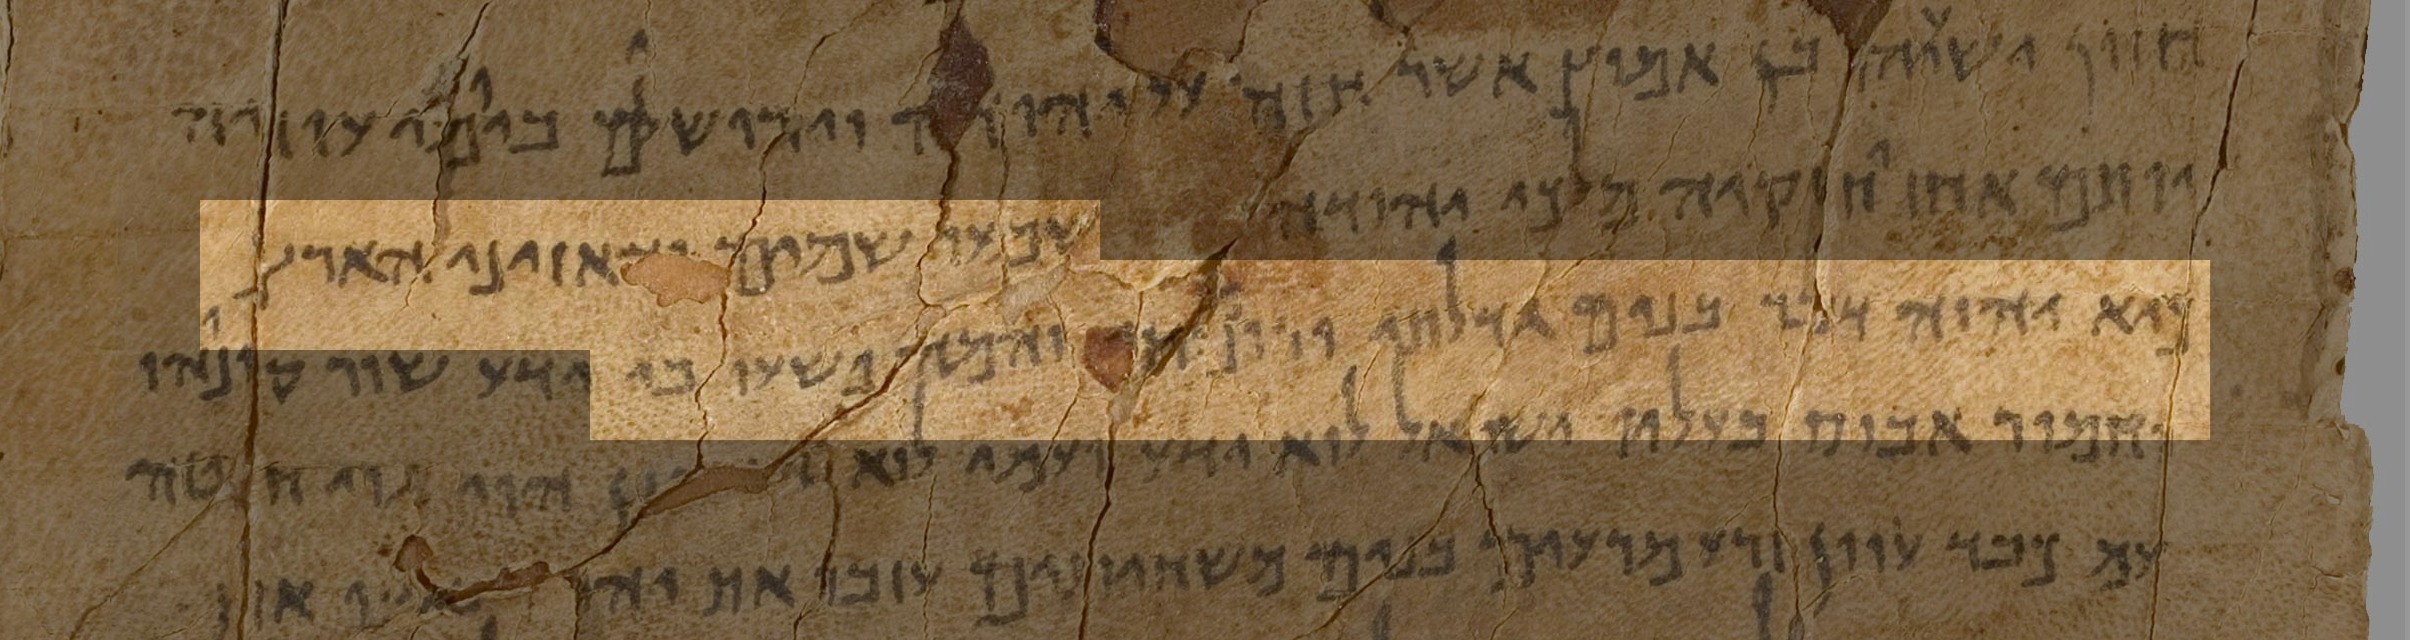 חזון ישעיהו בן אמוץ אשר חזה על יהודה וירושלם ביומי עוזיה
יותם אחז יחזקיה מלכי יהודה שמעו שמים והאזינו הארץ
כיא יהוה דבר בנים גדלתי ורוממתי והמה פשעו בי ידע שור קונהו
וחמור אבוס בעליו ישראל לוא ידע ועמי לוא התבונן הוי גוי חוטה
עם כבד עוון זרע מרעים בנים משחיתים עזבו את יהוה